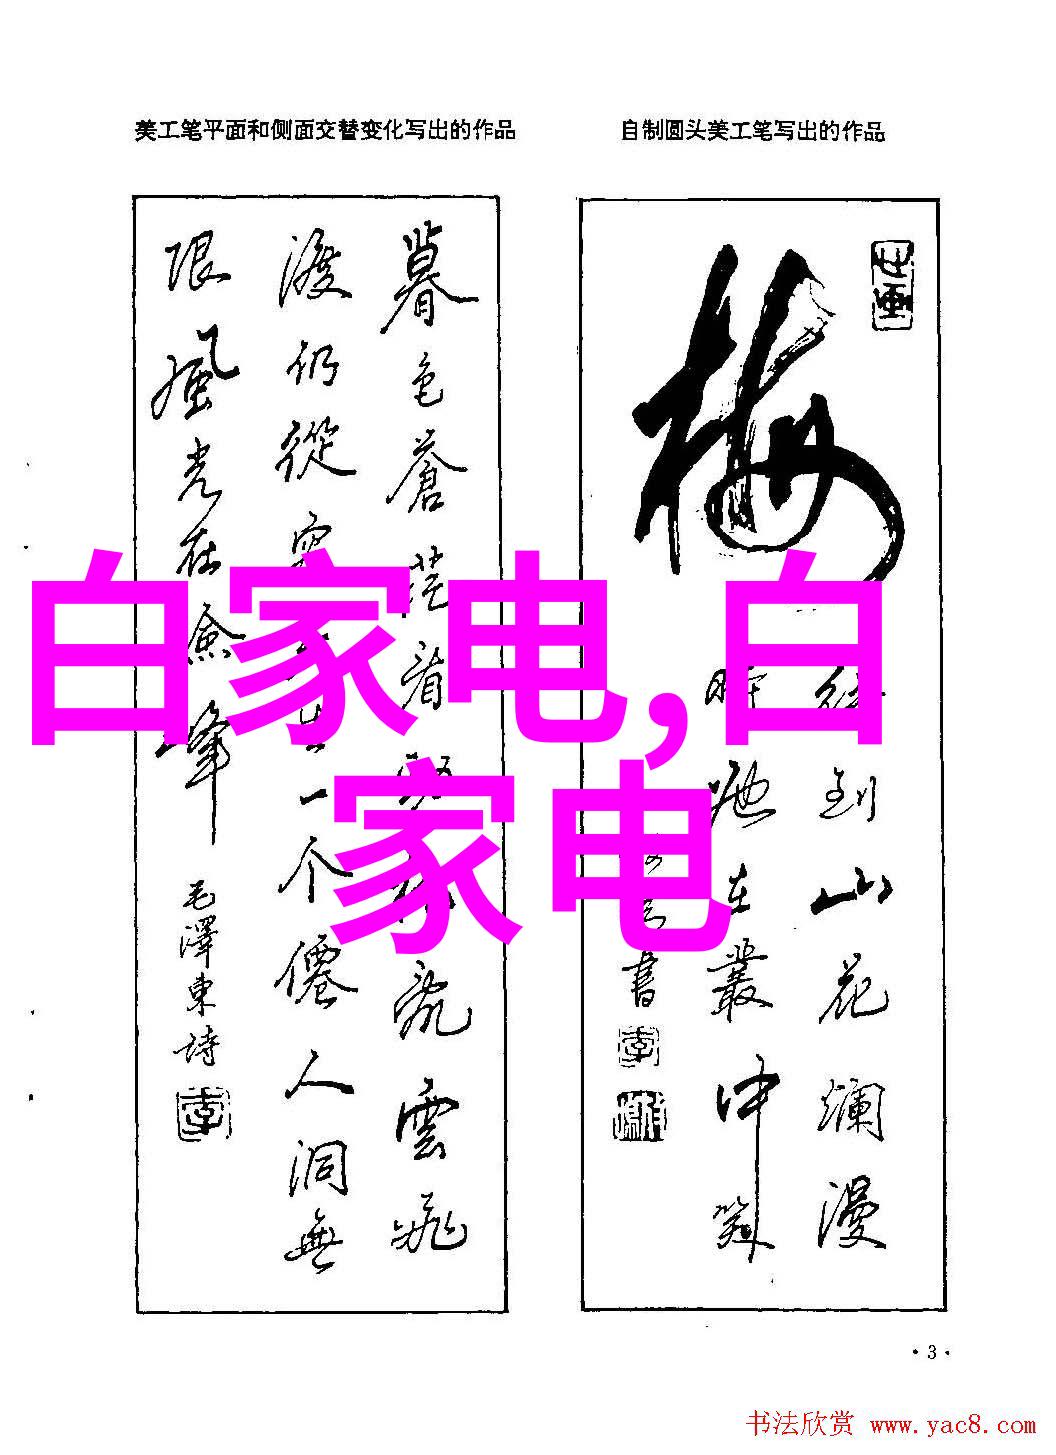 美工笔平面和侧面交替变化写出的作品
自制圆头美工笔写出的作品
暮色蒼茫看劲松乱雲飛
渡仍從
一个僊人洞無
限風光在險峰
毛澤東詩
梅
待到山花爛漫
時她在叢中笑
書
白家电,白
家电
·3·
书法欣赏 www.yac8.com